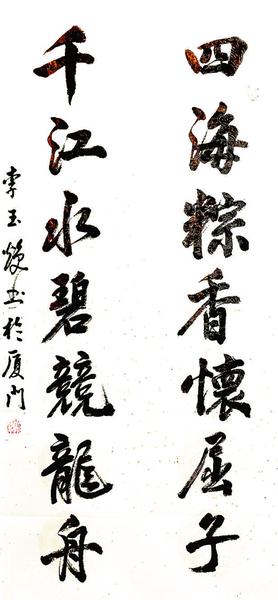 四海粽香懷屈子
千江水碧競龍舟
李玉燦书於厦门